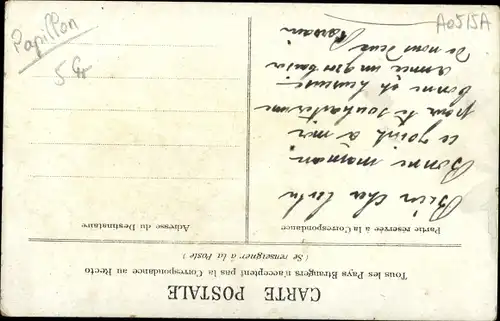 CARTE POSTALE
Tous les Pays Etrangers n'acceptent pas la Correspondance au Recto
(Se renseigner à la Poste)
Partie réservée à la Correspondance
Adresse du Destinataire
Bien cher
Bonne maman
ce joint à moi
pour te souhaiter une
bonne et heureuse
année un gros baiser
de nous deux
Papillon
5
A0515A